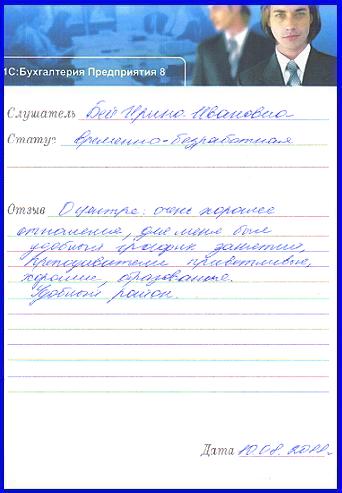 1С:Бухгалтерия Предприятия 8
Слушатель Бей Ирина Ивановна
Статус временно-безработная
Отзыв О центре: очень хорошее
отношение, для меня был
удобный график занятий,
преподаватели приветливые,
хорошие, образованые.
Удобный район.
Дата 10.08.